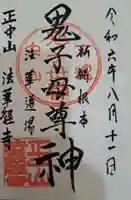 令和六年八月十一日
祈祷根本
鬼子母尊神
法華道場
正中山 法華経寺